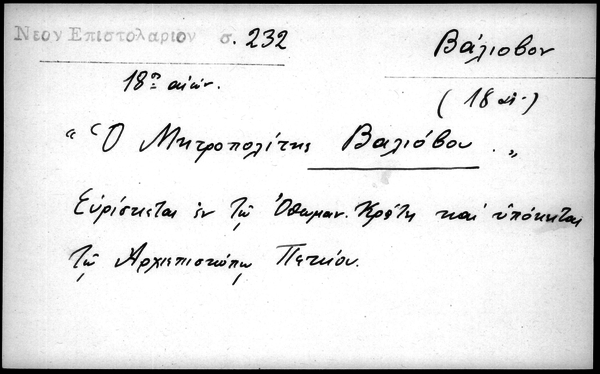 Νεον Επιστολαριον σ. 232
Βάλιοβον
18ος αιών.
(18 αι.)
"Ὁ Μητροπολίτης Βαλιόβου."
Εὑρίσκεται ἐν τῷ Ὀθωμαν. Κράτει καί ὑπόκειται
τῷ Ἀρχιεπισκόπῳ Πεκίου.